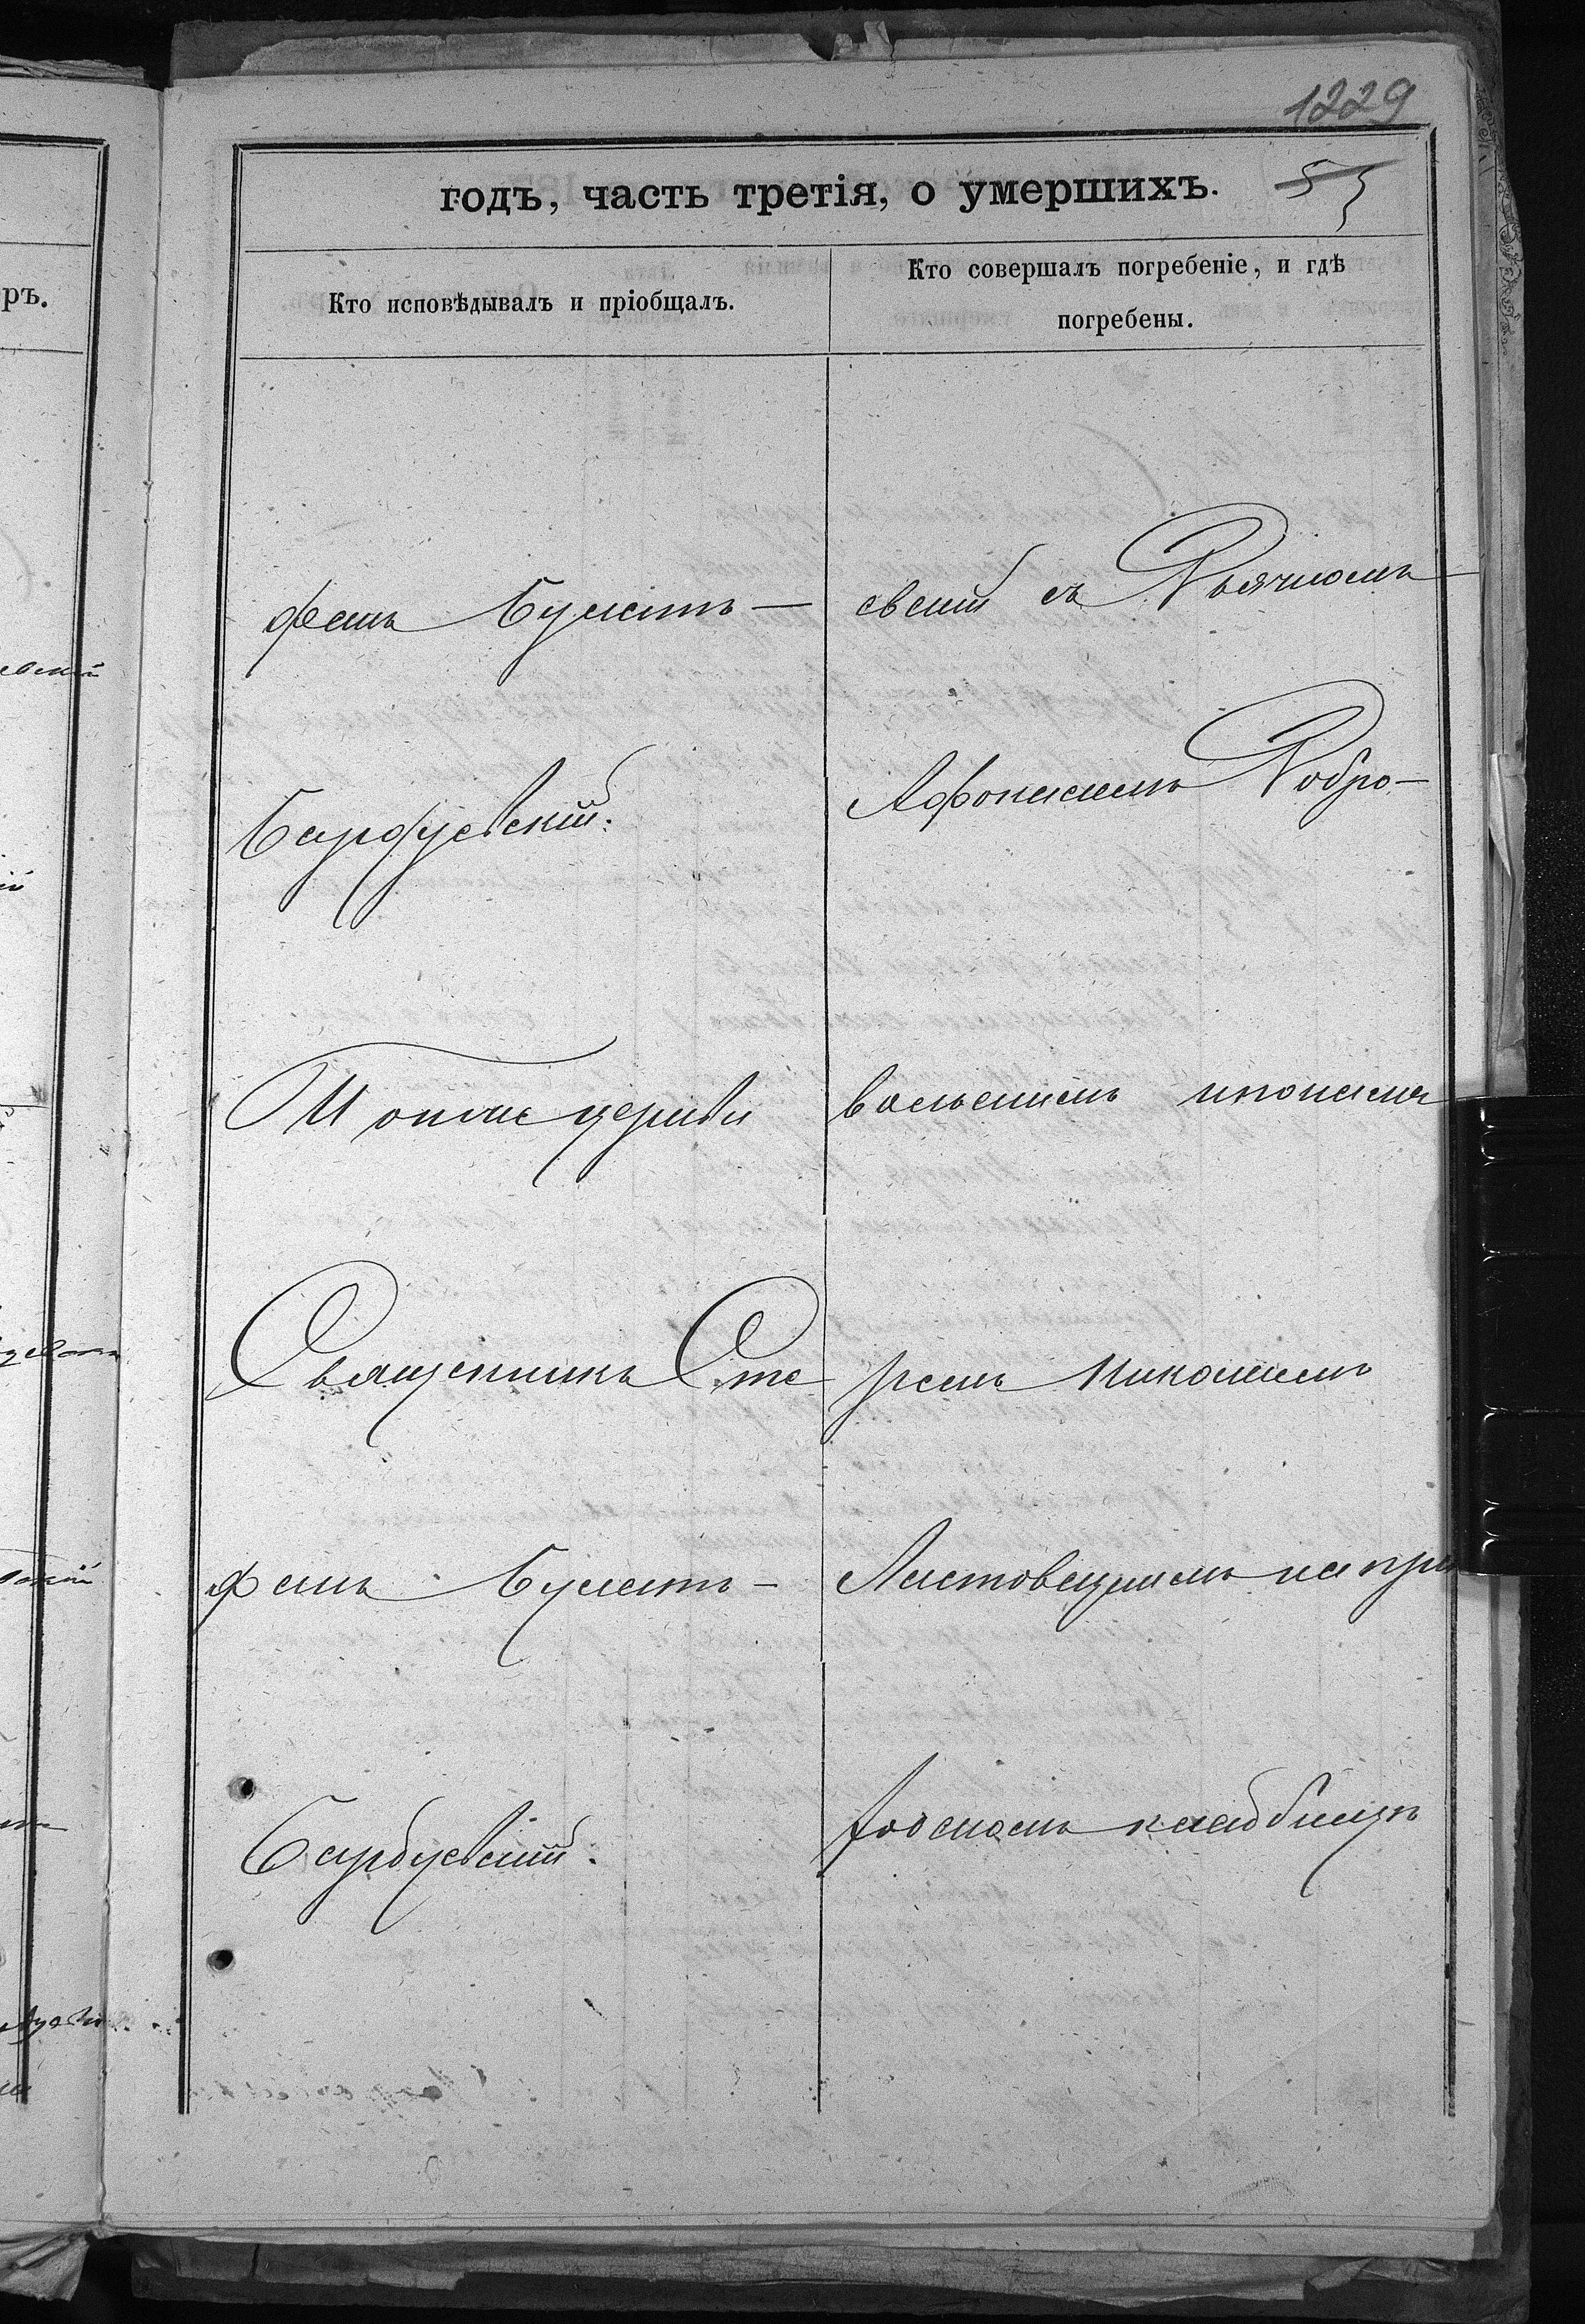 1229
годъ, часть третія, о умершихъ.
55
ръ.
Кто исповѣдывалъ и пріобщалъ.
Кто совершалъ погребеніе, и гдѣ
погребены.
фанъ Булатъ—
скій съ Дьячкомъ
Барбуевскій.
Афонасіемъ Добро-
Тойже церкви
вольскимъ и поном
Священникъ Сте
ремъ Николаемъ
фанъ Булатъ-
Листовецкимъ на при
Барбуевскій.
ходскомъ кладбищѣ